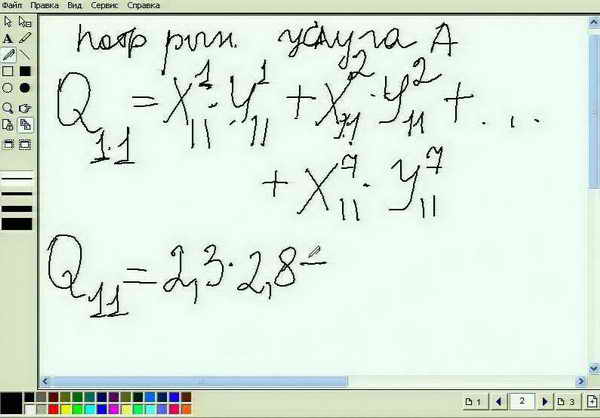 Файл Правка Вид Сервис Справка
потр рын. услуга А
Q₁.₁ = X¹₁₁ · Y¹₁₁ + X²₁₁ · Y²₁₁ + . . .
+ X⁷₁₁ · Y⁷₁₁
Q₁₁ = 2,3 · 2,8 =
1 2 3